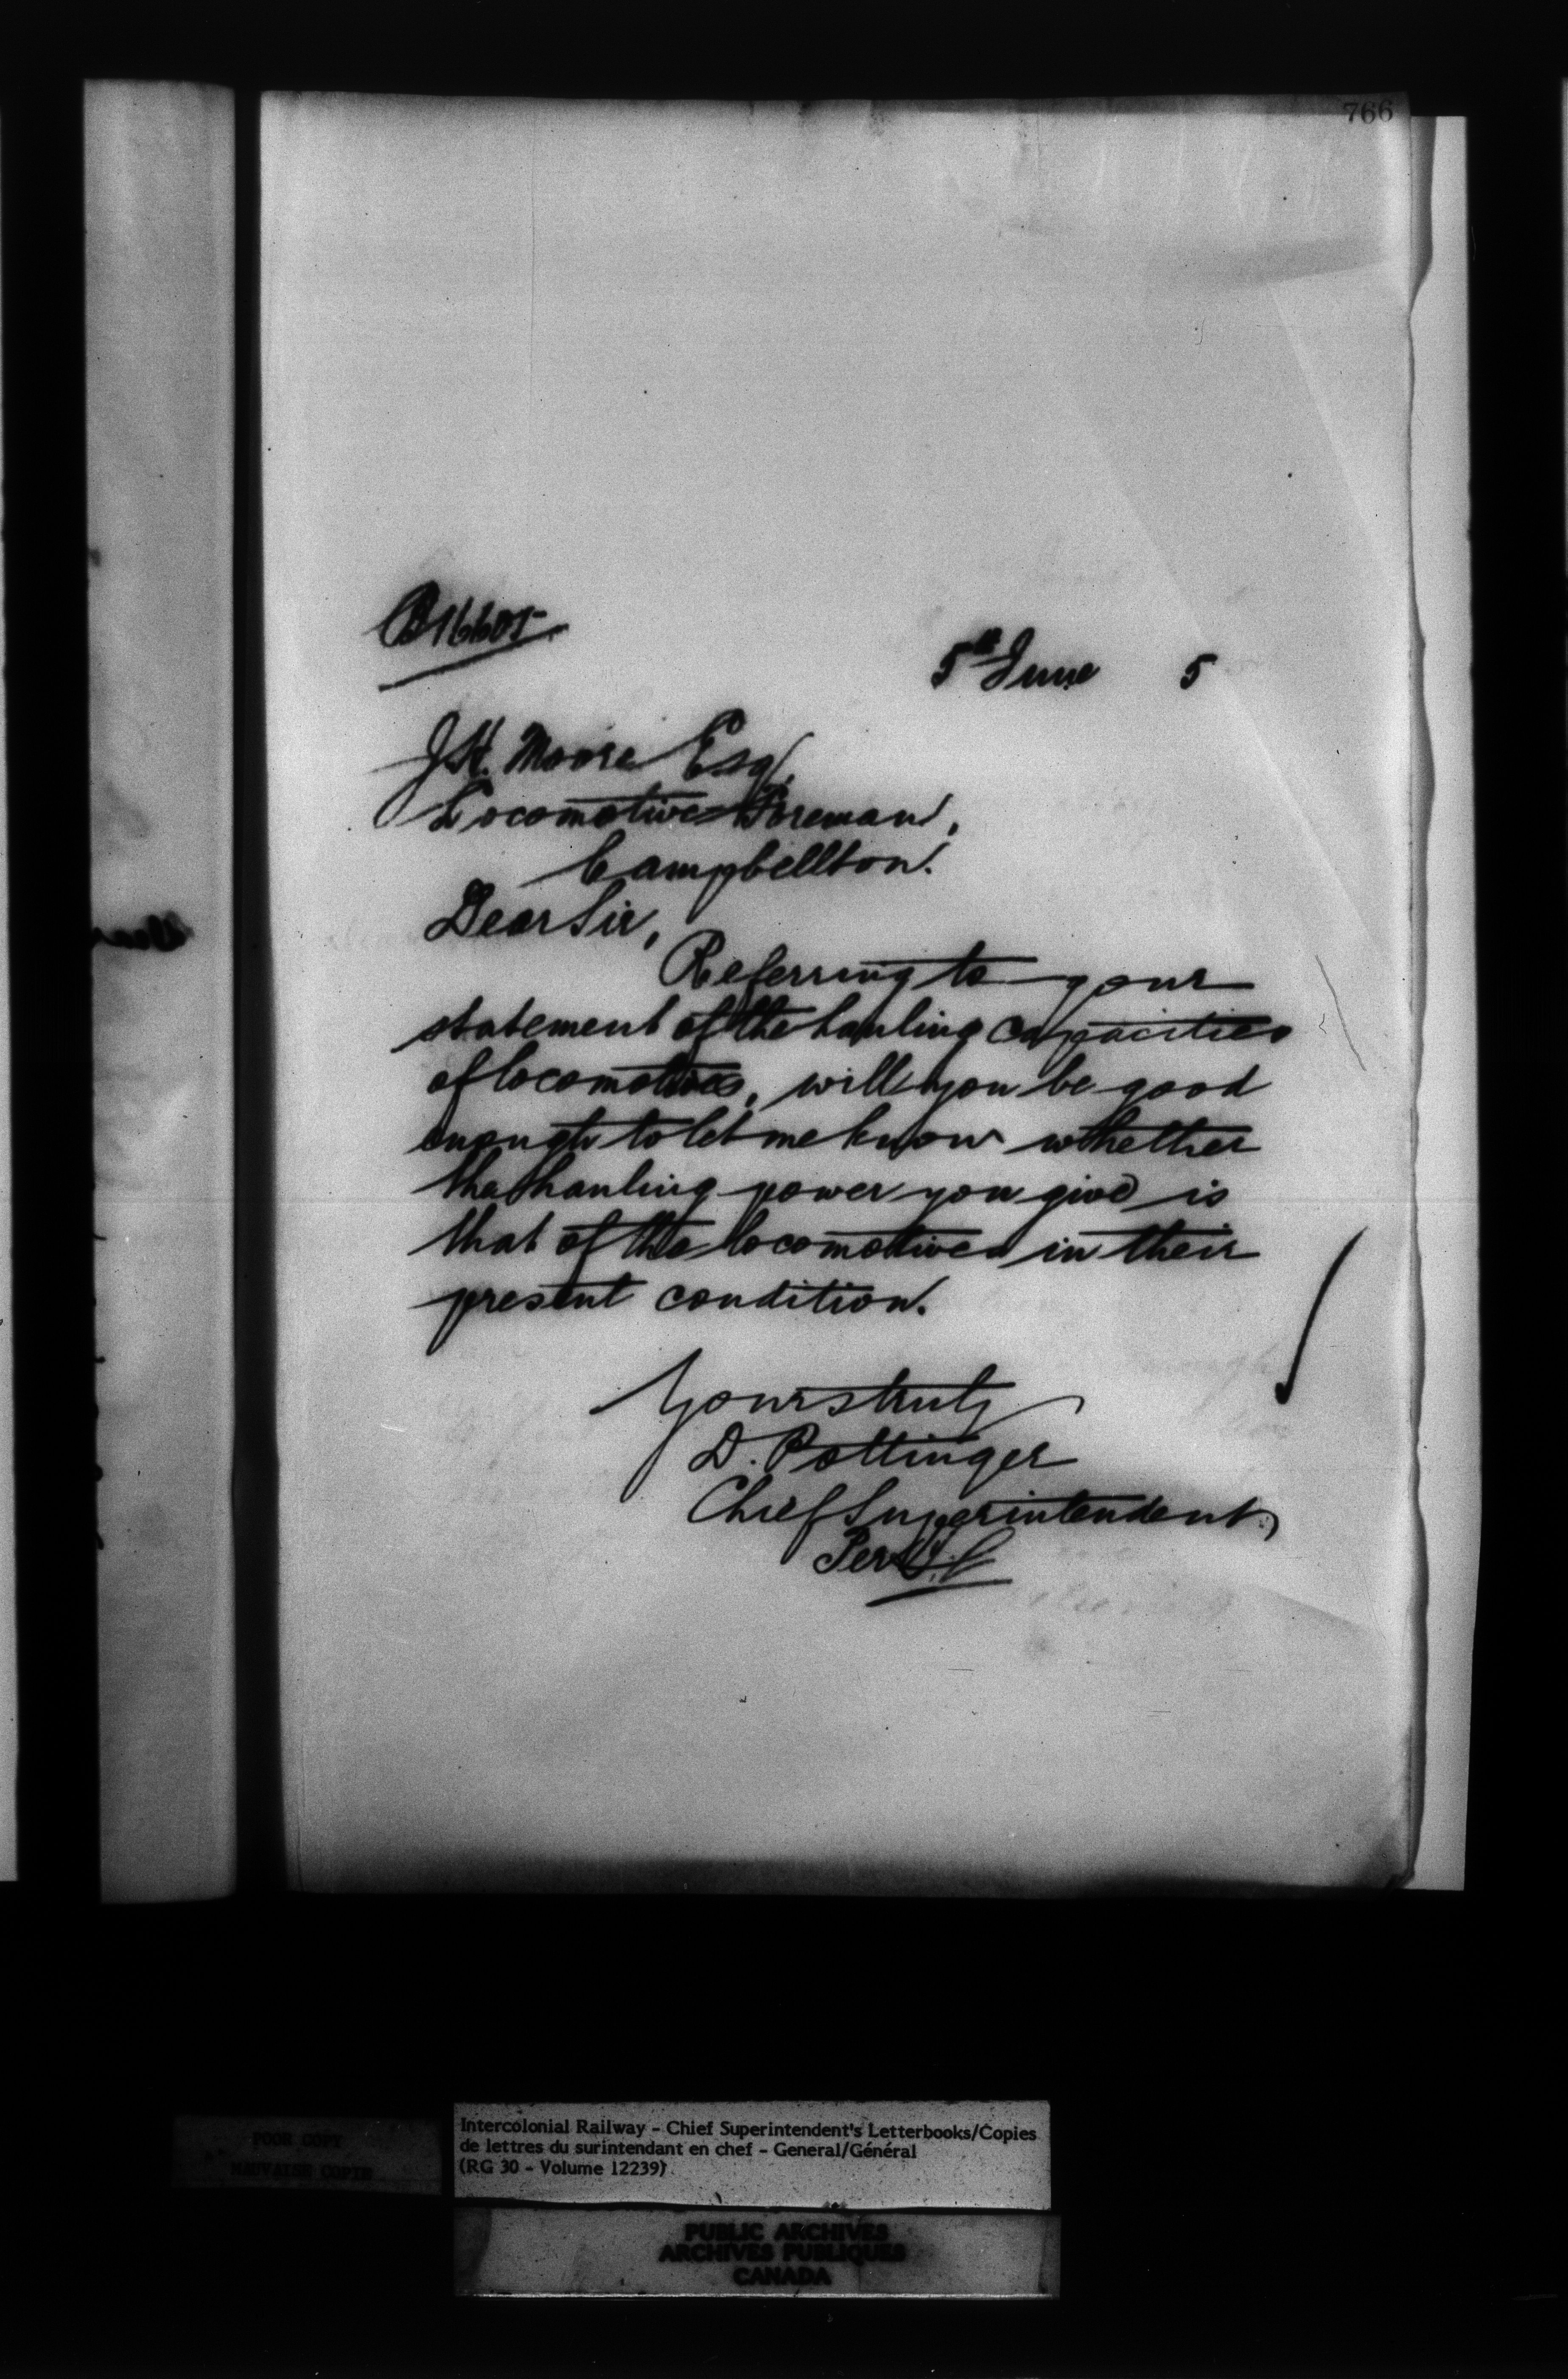 766
B16605
5th June 5
J.H. Moore Esq,
Locomotive Foreman,
Campbellton.
Dear Sir,
Referring to your
statement of the hauling capacities
of locomotives, will you be good
enough to let me know whether
the hauling power you give is
that of the locomotives in their
present condition.
Yours truly
D. Pottinger
Chief Superintendent
Per
POOR COPY
MAUVAISE COPIE
Intercolonial Railway - Chief Superintendent's Letterbooks/Copies
de lettres du surintendant en chef - General/Général
(RG 30 - Volume 12239)
PUBLIC ARCHIVES
ARCHIVES PUBLIQUES
CANADA